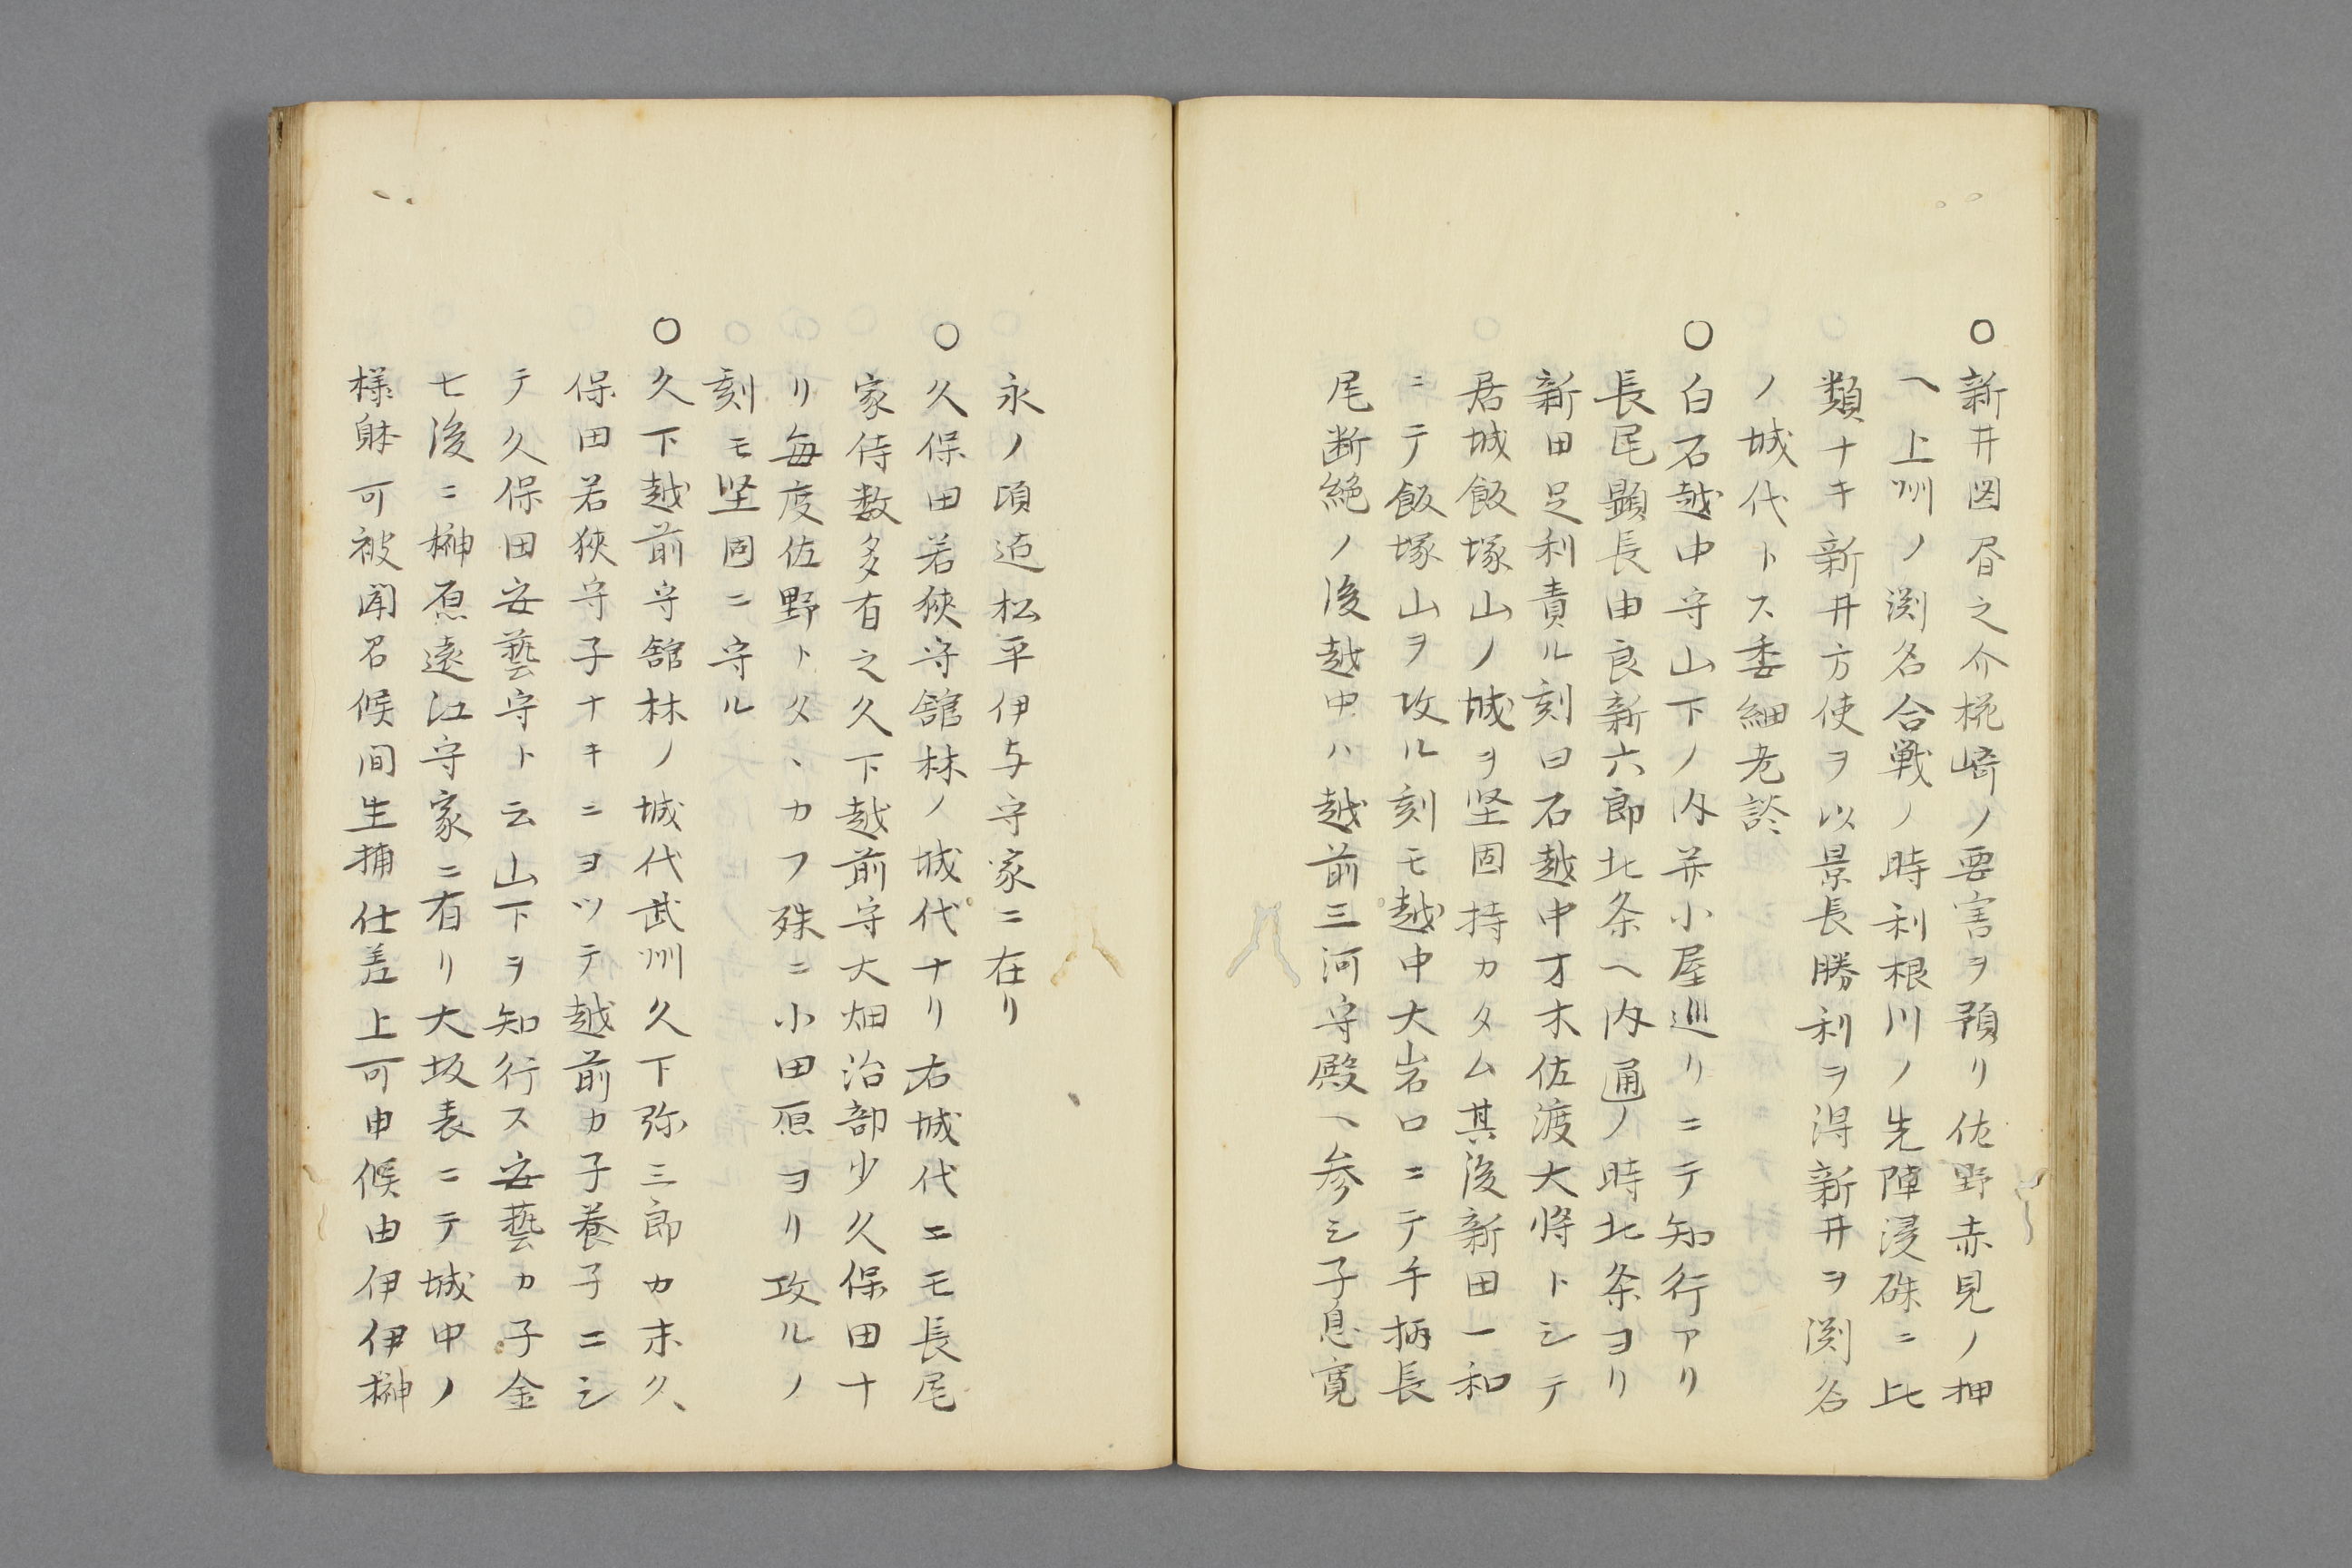 ○新井図昼之介椛崎ノ要害ヲ預リ佐野赤見ノ押
ヘ上州ノ渕名合戦ノ時利根川ノ先陣浸硃ニ比
類ナキ新井方使ヲ以景長勝利ヲ得新井ヲ渕名
ノ城代トス委細老談
○白石越中守山下ノ内并小屋巡リニテ知行アリ
長尾顕長由良新六郎北条ヘ内通ノ時北条ヨリ
新田足利責ル刻白石越中才木佐渡大将トシテ
居城飯塚山ノ城ヲ坚固持カタム其後新田一和
ニテ飯塚山ヲ攻ル刻モ越中大岩口ニテ手柄長
尾断絶ノ後越中ハ越前三河守殿ヘ参シ子息寛
永ノ頃迠松平伊与守家ニ在リ
○久保田若狹守舘林ノ城代ナリ右城代ニモ長尾
家侍数多有之久下越前守大畑治部少久保田十
リ毎度佐野トタヽカフ殊ニ小田原ヨリ攻ルノ
刻モ坚固ニ守ル
○久下越前守舘林ノ城代武州久下弥三郎カ末久
保田若狹守子ナキニヨツテ越前カ子養子ニシ
テ久保田安藝守ト云山下ヲ知行ス安藝カ子金
七後ニ榊原遠江守家ニ有リ大坂表ニテ城中ノ
様躰可被聞召候间生捕仕差上可申候由伊伊榊